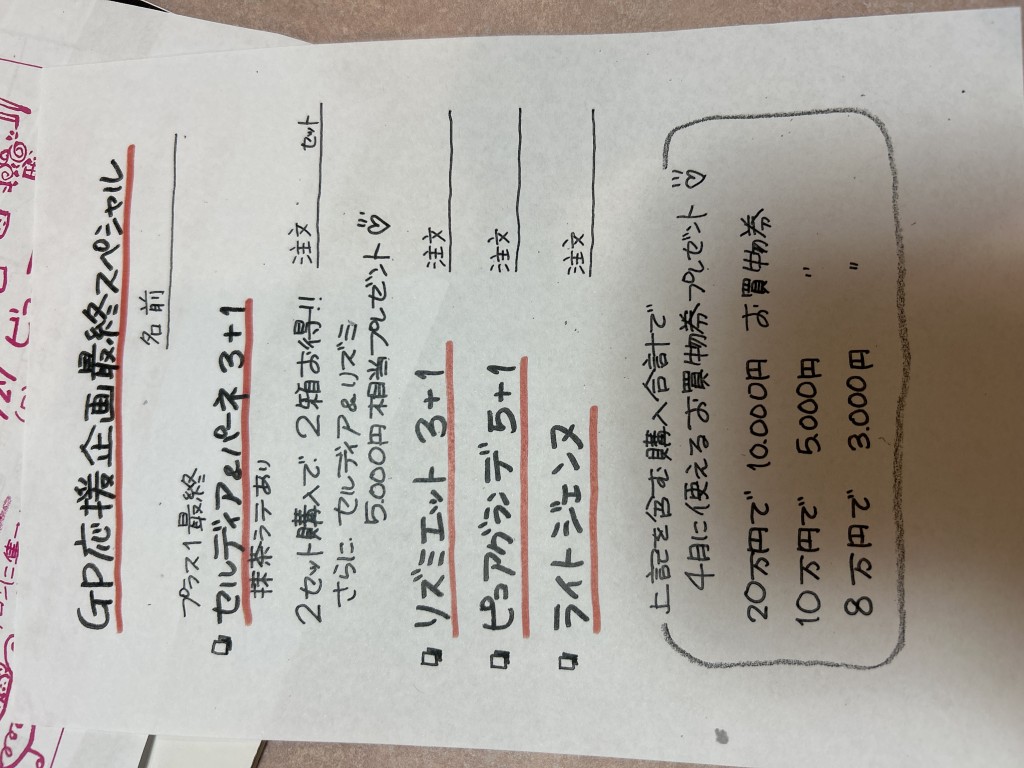 GP応援企画最終スペシャル
名前
プラス1最終
セルディア&パーネ3+1
抹茶ラテあり
2セット購入で2箱お得!! 注文 セット
さらに、セルディア&リズミ
5.000円相当プレゼント♡
リズミエット3+1 注文
ピュアグランデ5+1 注文
ライトジェンヌ 注文
上記を含む購入合計で
4月に使えるお買物券プレゼント♡
20万円で 10.000円 お買物券
10万円で 5.000円 〃
8万円で 3.000円 〃